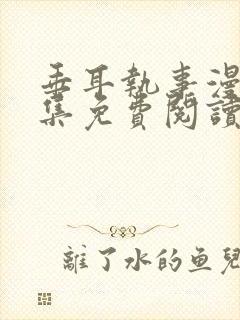 垂耳執事漫
集免費閱讀
離了水的鱼兒